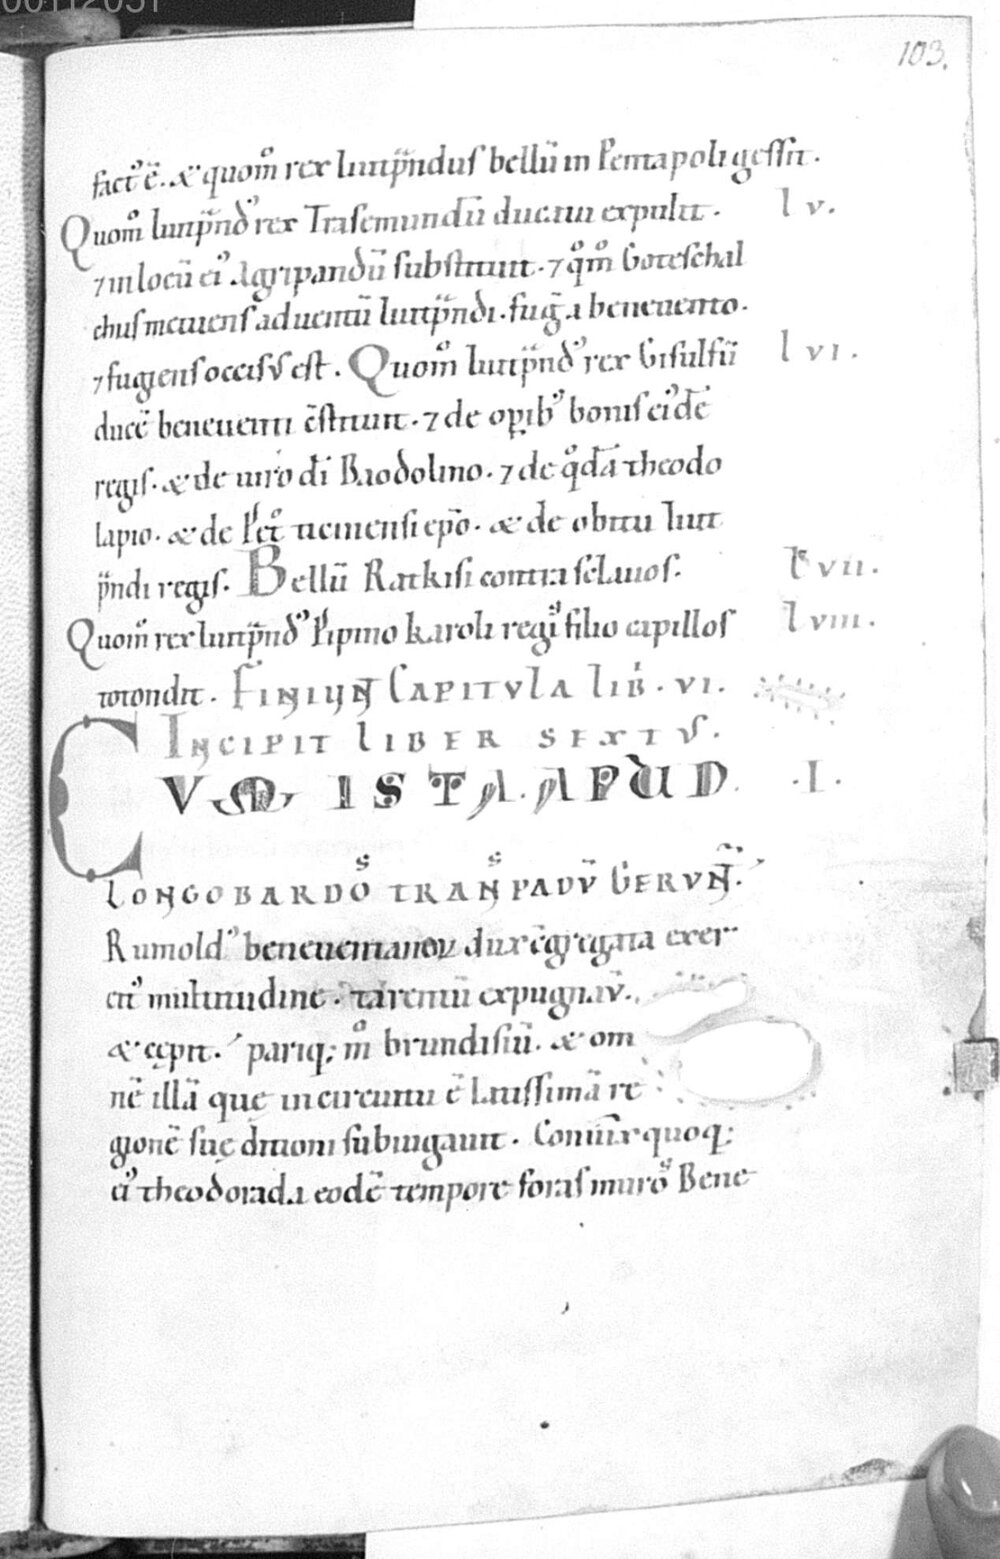 103.
fact᾽ ē. & quom̊ rex liutp̄ndus bellū in Pentapoli gessit.
Quom̊ liutp̄nd᾽ rex Trasemundū ducatu expulit. lv.
⁊ in locū ei᾽ Agripandū substituit. ⁊ q̊m̊ Goteschal
chus metuens aduentū liutp̄ndi. fuḡ a beneuento.
⁊ fugiens occisus est. Quom̊ liutp̄nd᾽ rex Gisulfū lvi.
ducē beneuenti c̄stituit. ⁊ de opib᾽ bonis ei᾽dē
regis. & de uiro dī Baodolino. ⁊ de q̊dā theodo
lapio. & de Pet̊ ticinensi ep̄o. & de obitu liut
p̄ndi regis. Bellū Ratkisi contra sclauos. lvii.
Quom̊ rex liutp̄nd᾽ Pipino karoli regis filio capillos lviii.
totondit. Finiunt Capitvla lib. vi.
Incipit liber sextvs.
CVM ISTA. APUD .I.
longobardos trans padv̄ gervnt̄.
Rumold᾽ beneuentanoꝝ dux c̄gregata exer
cit᾽ multitudine. tarentū expugnav̄.
& cępit. pariq; m̊ brundisiū. & om
nē illā quę in circuitu ē latissimā re
gionē suę ditioni subiugauit. Coniunx quoq;
ei᾽ theodorada eodē tempore foras muros Bene